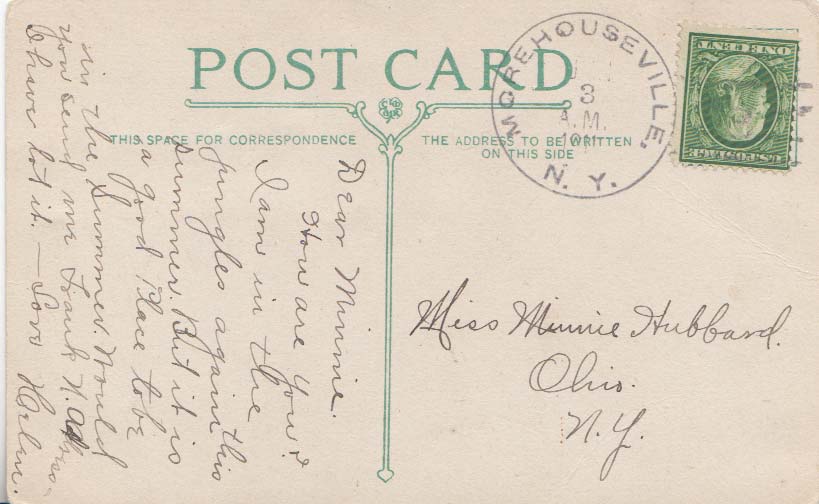 POST CARD
THIS SPACE FOR CORRESPONDENCE
THE ADDRESS TO BE WRITTEN
ON THIS SIDE
MOREHOUSEVILLE,
3
A.M.
N. Y.
U.S. POSTAGE
ONE CENT
Dear Minnie.
How are you?
I am in the
jungles again this
summer. But it is
a good Place to be
in the Summer. Would
you send me Frank N.
I have lost it. — Love Helen.
Miss Minnie Hubbard.
Ohio.
N.Y.